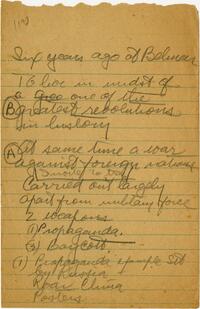 Six years ago at Belmar
I live in midst of
a one of the
B greatest revolutions
in history
A At same time a war
against foreign nations
Carried out largely
apart from military force
2 weapons
(1) Propaganda.
(2) Boycott.
(1) Propaganda example set
by Russia
Posters